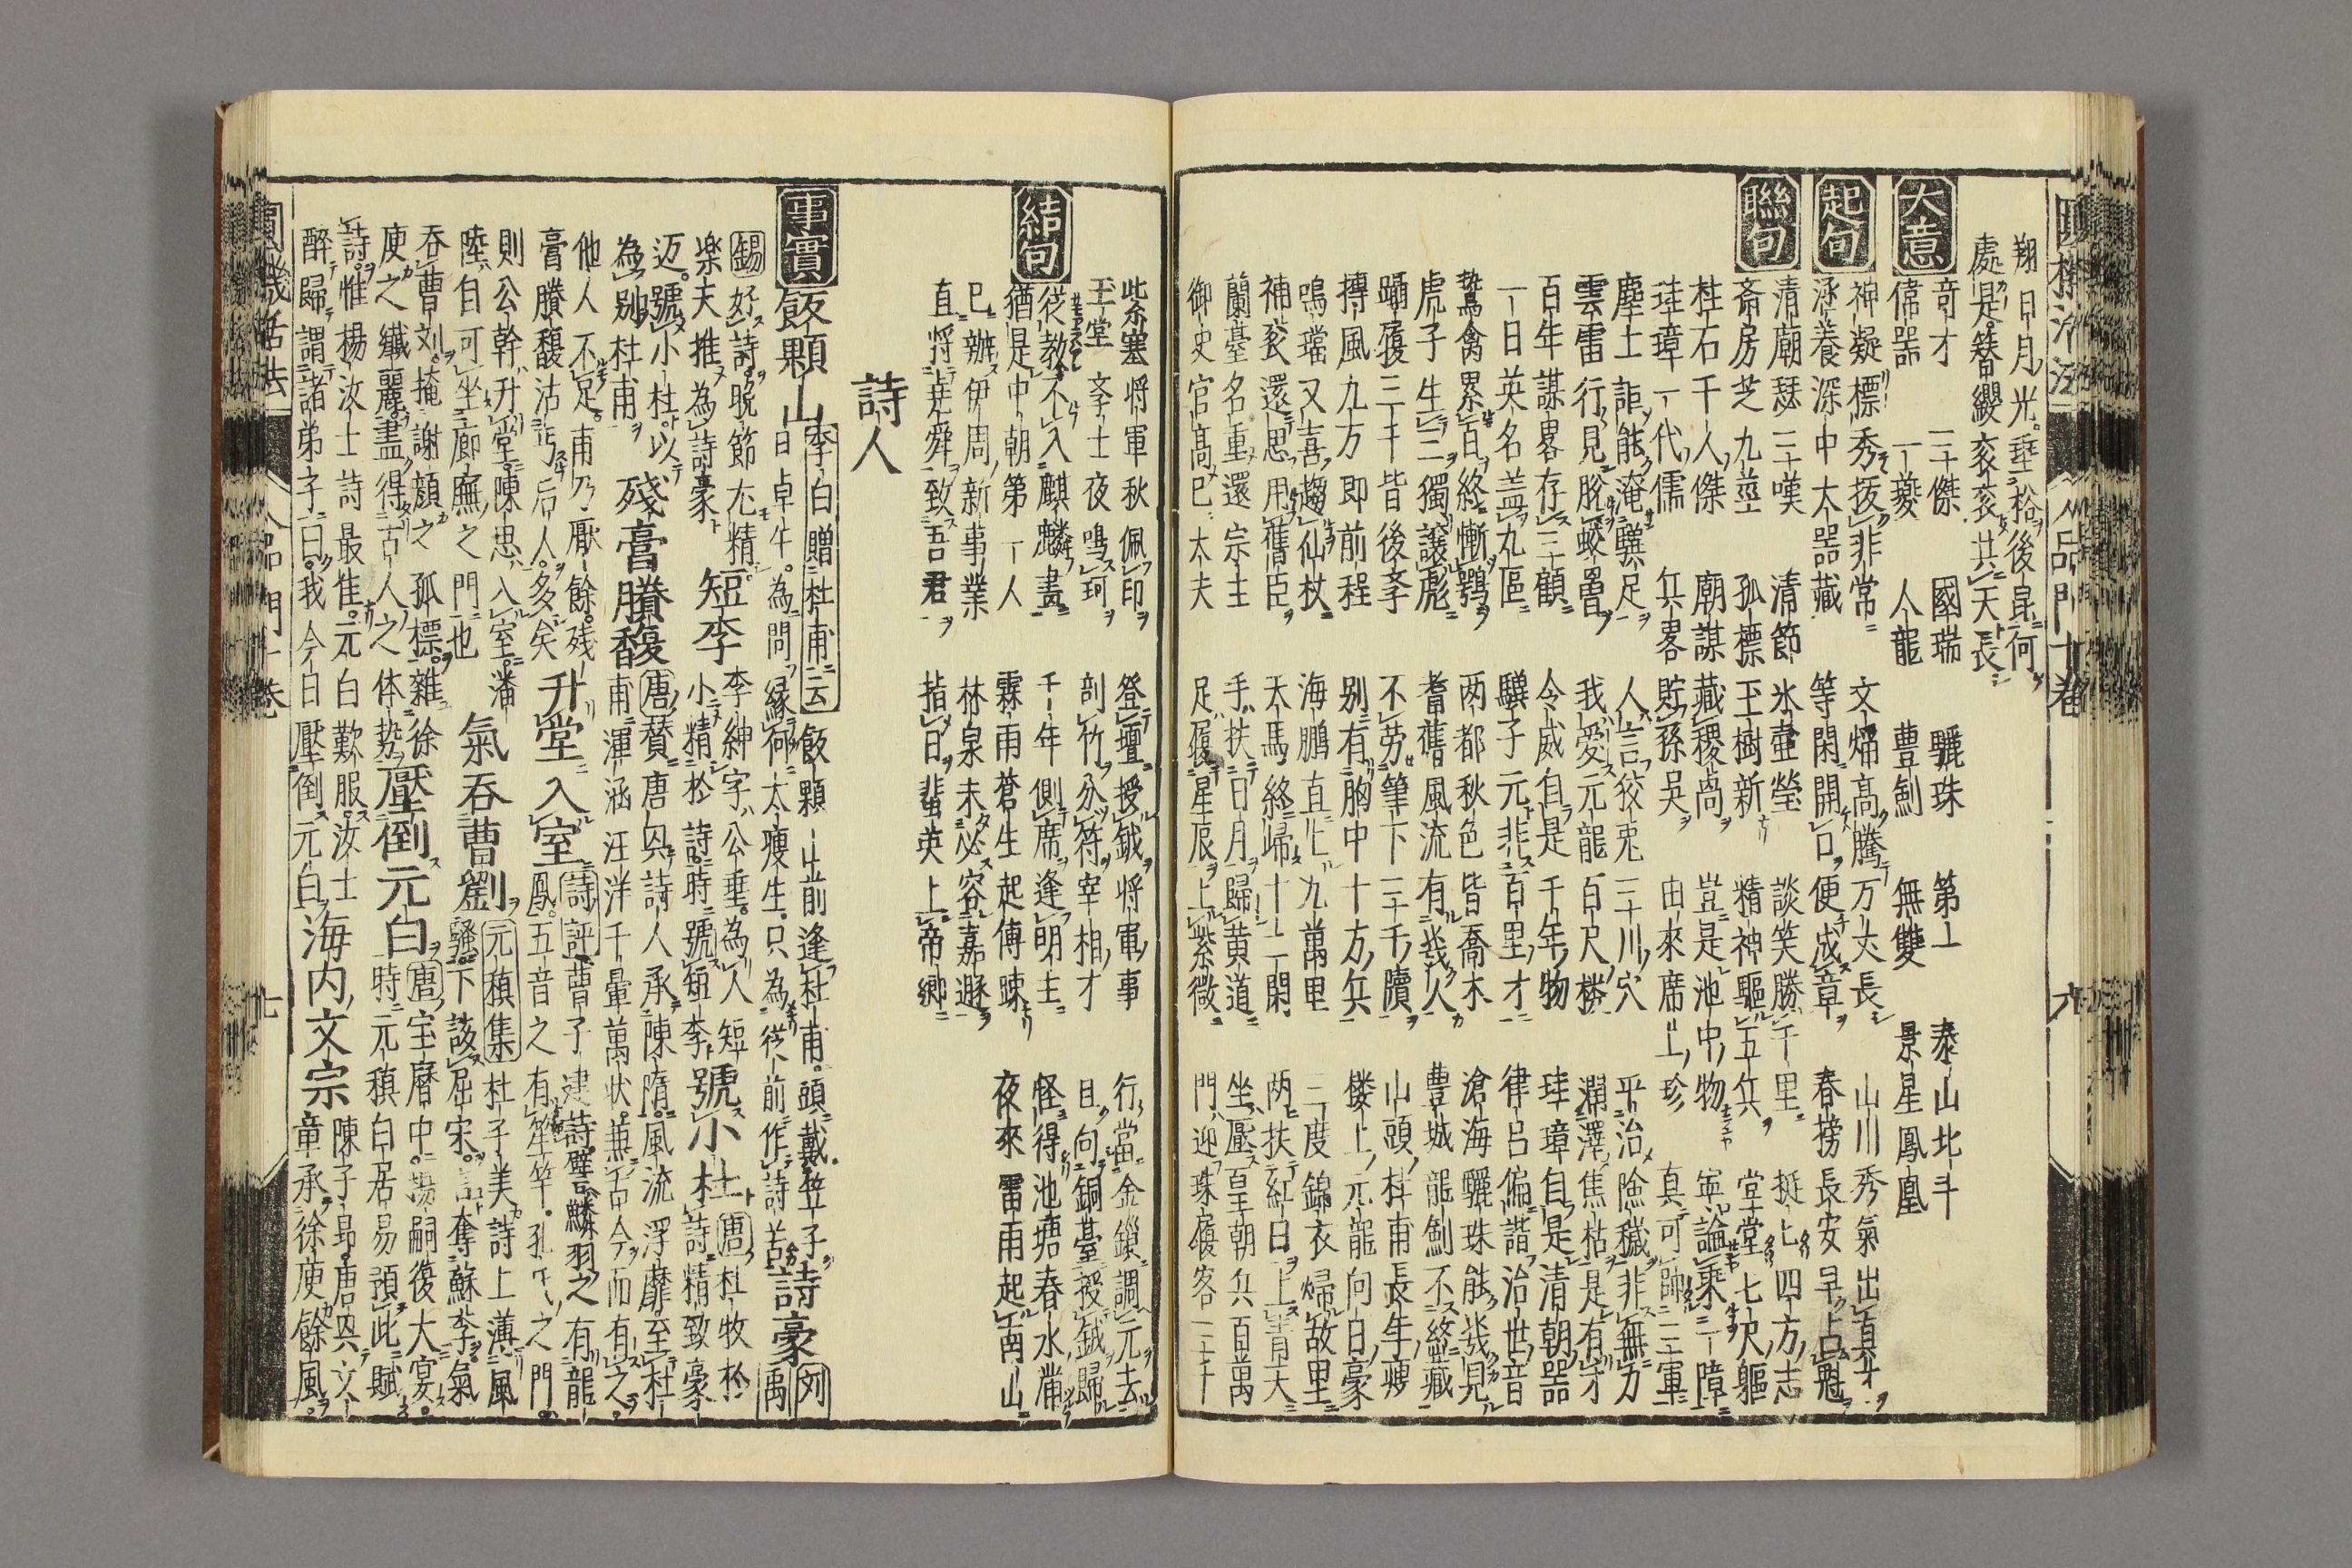 翔日月光垂裕後昆何
處是簪纓衮衮共天長
大意
奇才 三傑 國瑞 驪珠 第一 泰山北斗
偉器 一夔 人龍 豊劍 無雙 景星鳳凰
起句
神凝標秀拔非常 文焔高騰万丈長 山川秀氣出真才
涵養深中大器藏 等閑開口便成章 春榜長安早占魁
聯句
清廟瑟三嘆 清節氷壷瑩 談笑勝千里 挺上四方志
斎房芝九莖 孤標玉樹新 精神驅五兵 堂堂七尺軀
柱石千人傑 廟謀藏稷卨 豈是池中物 寧論乘一障
珪璋一代儒 兵畧貯孫吳 由來席上珍 真可帥三軍
塵土詎能淹驥足 人言狡兎三川穴 平治險穢非無力
雲雷行見脫蛟 我愛元龍百尺樓 潤澤焦枯是有才
百年謀畧存三顧 令威自是千年物 珪璋自是清朝器
一日英名盖九區 驥子元非百里才 律呂偏諧治世音
鷙禽累百終慚鶚 两都秋色皆喬木 滄海驪珠能幾見
虎子生三獨讓彪 耆舊風流有幾人 豊城龍劍不終藏
躡履三千皆後 不勞筆下三千牘 山頭杜甫長年瘦
摶風九万即前程 别有胸中十万兵 楼上元龍向日豪
鳴璫又喜趨仙杖 海鵬直上九萬里 三度錦衣歸故里
神衮還思用舊臣 天馬終歸十二閑 两扶紅日上青天
蘭臺名重還宗主 手扶日月歸黄道 坐壓皇朝兵百萬
御史官高已太夫 足履星辰上紫微 門迎珠履客三千
紫塞將軍秋佩印 登壇授鉞將軍事 行當金鎖調元去
玉堂斈士夜鳴珂 剖竹分符宰相才 日向銅臺授鉞歸
結句
從教不入麒麟畫 千年側席逢明主 怪得池塘春水滿
猶是中朝第一人 霖雨蒼生起傅 夜來雷雨起南山
已辦伊周新事業 林泉未必容嘉遯
直將堯舜致吾君 指日蜚英上帝郷
詩人
事實
飯顆山 李白贈杜甫云 飯顆山前逢杜甫頭戴笠子
日卓午為問緣何太痩生只為從前作詩苦 詩豪 刘禹
錫 好詩晩節尤精 短李 李紳字公垂為人短 號小杜 唐杜牧於
樂天推為詩豪 小精於詩時號短李 詩精致豪
迈號小杜以 殘膏賸馥 唐賛唐興詩人承陳隋風流浮靡至杜
為别杜甫 甫渾涵汪洋千彙萬狀兼古今而有之
他人不足甫乃厭餘残 升堂入室 詩評曹子建詩譬麟羽之有龍
膏賸馥沾丐后人多矣 鳳五音之有笙竽孔氏之門
則公幹升堂陳思入室潘 氣吞曹劉 元稹集杜子美詩上薄風
陸自可坐廊廡之門也 騷下該屈宋言奪蘇李氣
吞曹刘掩謝顔之孤標雜徐 壓倒元白 唐宝曆中楊嗣復大宴
庾之纖麗盡得古人之体势 時元稹白居易預此賦
詩惟楊汝士詩最隹元白歎服汝士 海内文宗 陳子昂唐興文
醉歸謂諸弟子曰我今日壓倒元白 章承徐庾餘風